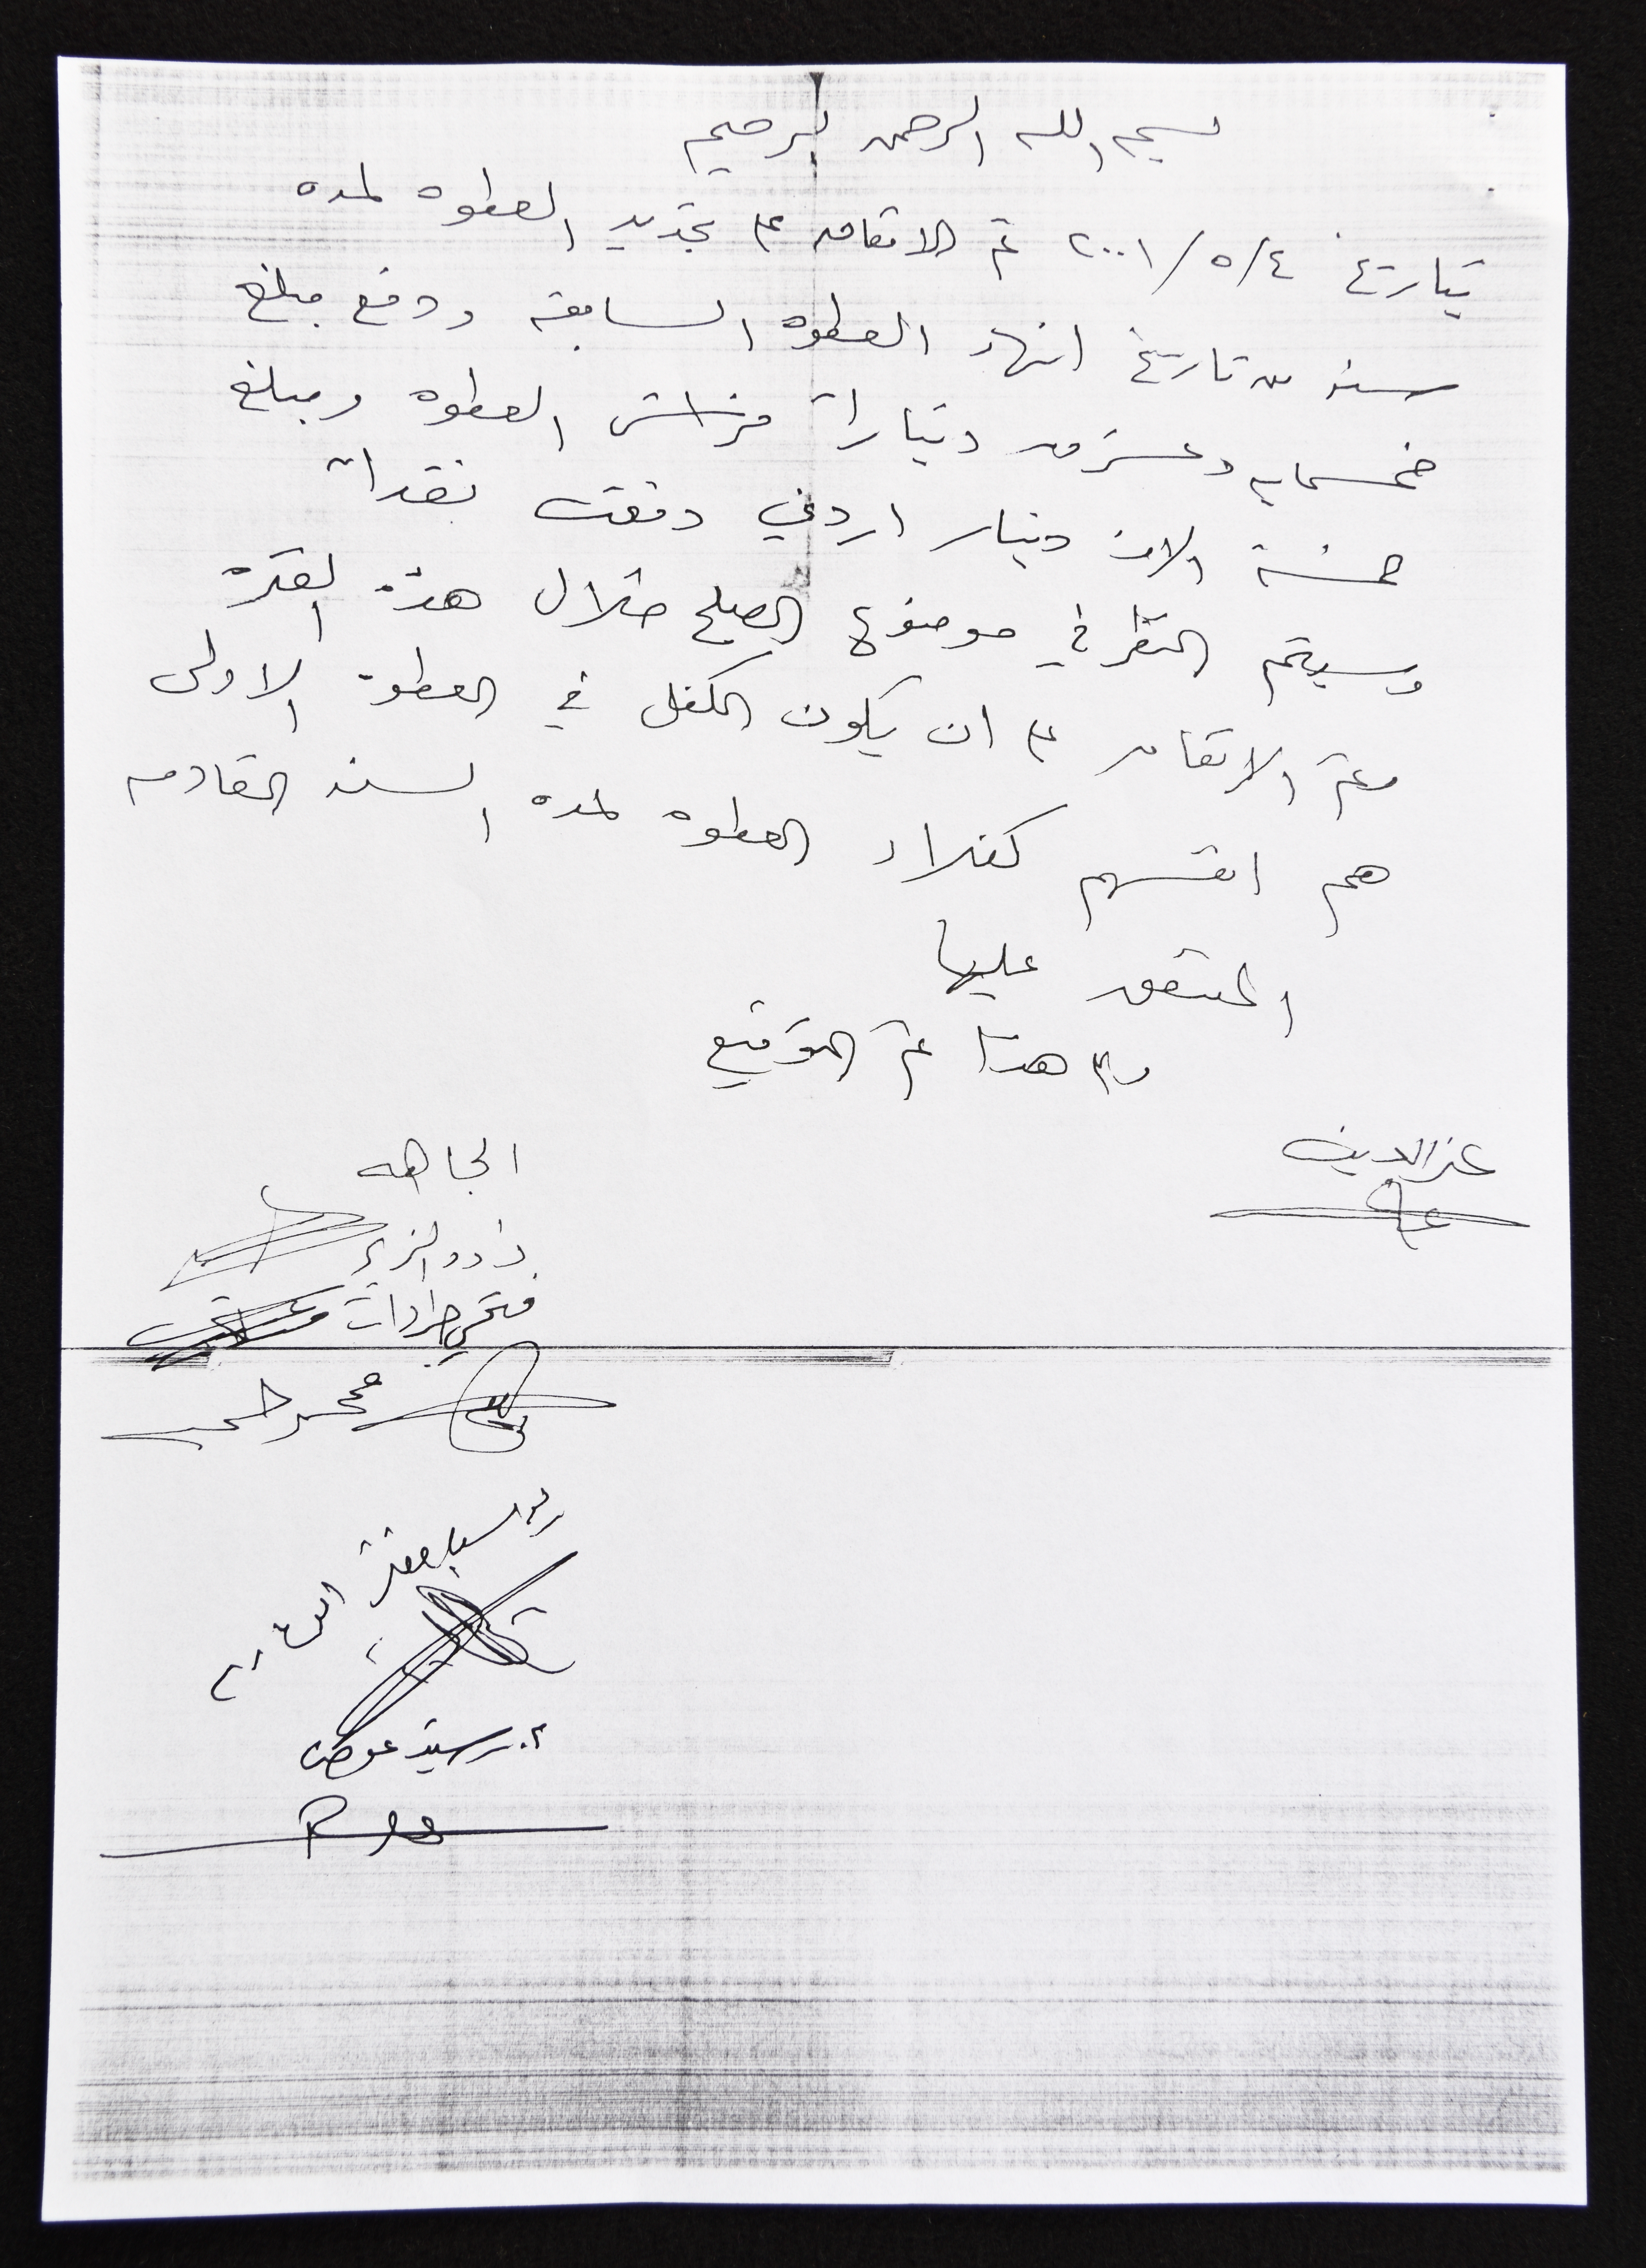 بسم الله الرحمن الرحيم
بتاريخ ٢٠٠١/٥/٤ تم الاتفاق على تجديد العطوه لمده
سنه من تاريخ انهاء العطوه السابقه ودفع مبلغ
خمسمايه وعشرون دينارا فراش العطوه ومبلغ
خمسة الاف دينار اردني دفعت نقدا
وسيتم النظر في موضوع الصلح خلال هذه الفتره
وتم الاتفاق على ان يكون الكفل في العطوة الاولى
هم انفسهم كفلاء العطوه لمده السنه القادمه
المتفق عليها
وعلى هذا تم التوقيع
عزالدين
الجاهه
فتحي جرادات
محمد
رشيد عوض